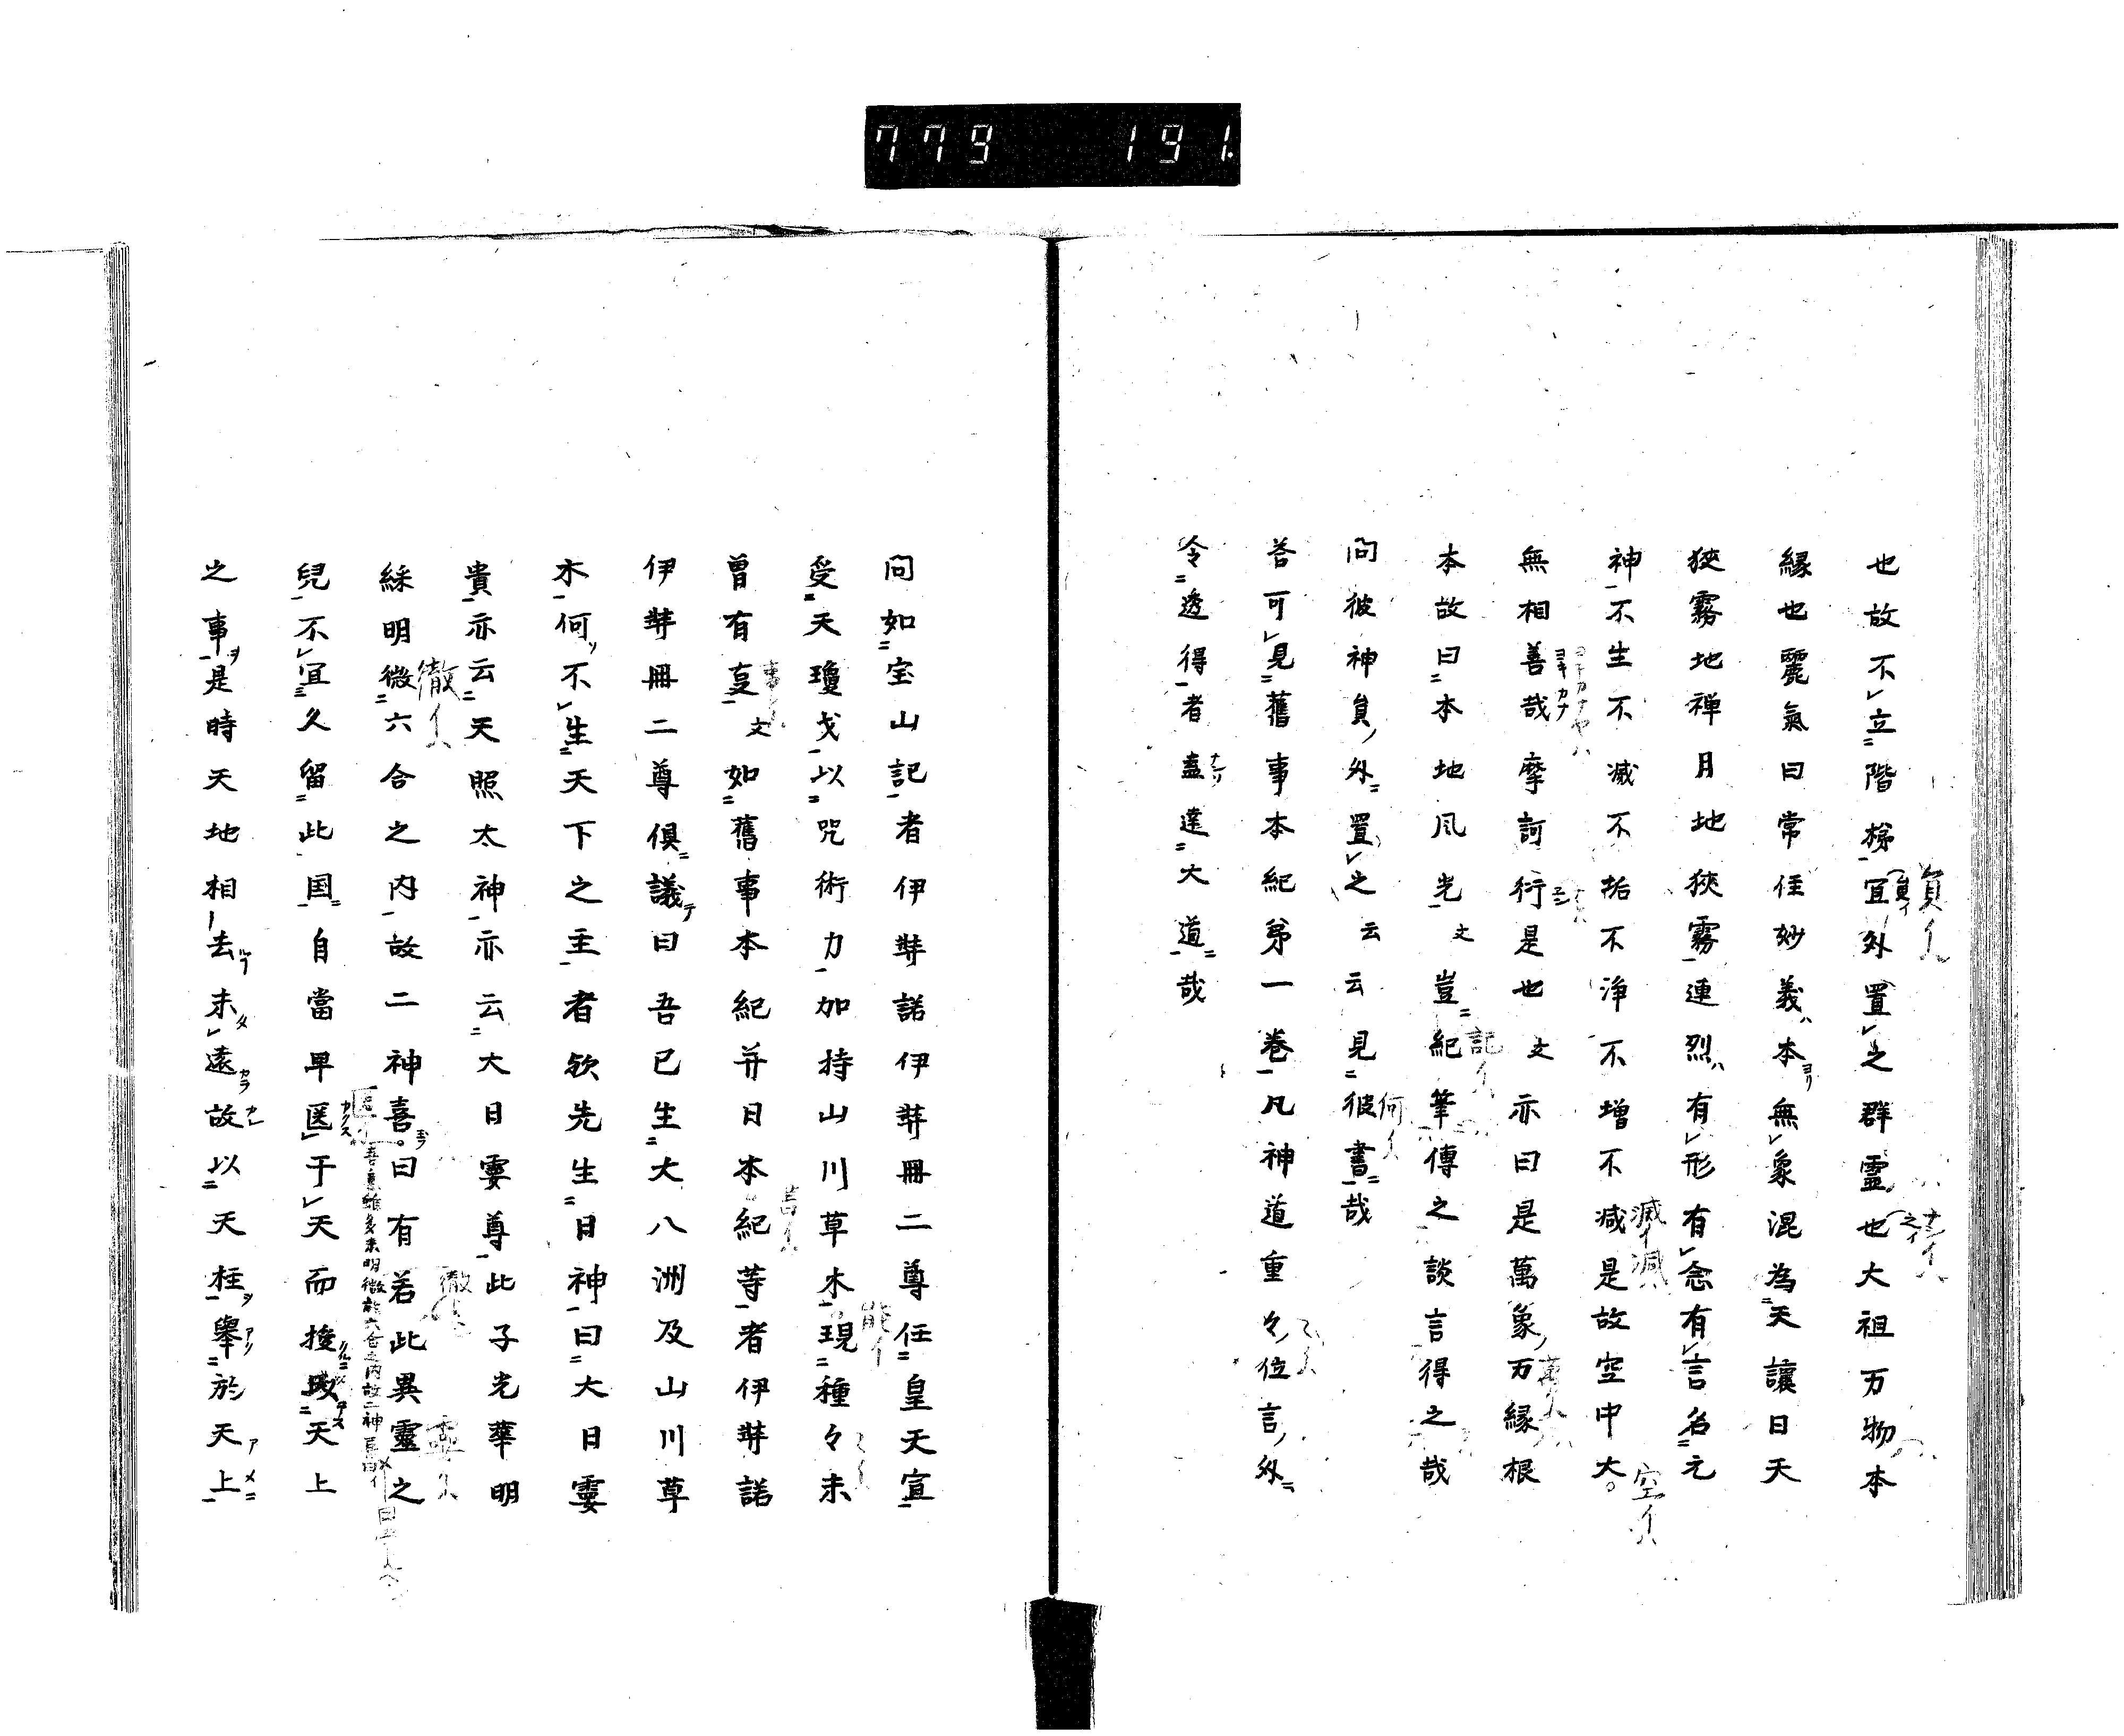 779 191
也故不立階梯宜外置之群霊也大祖万物本
縁也麗氣曰常住妙義本無象混為天讓日天
狹霧地禅月地狹霧連烈有形有念有言名元
神不生不滅不垢不浄不増不减是故空中大
無相善哉摩訶衍是也文亦曰是萬象万縁根
本故曰本地風光文豈紀筆傳之談言得之哉
問彼神負外置之云云見彼書哉
荅可見舊事本紀苐一巻凡神道重々位言外
令透得者盡達大道哉
問如宝山記者伊弉諾伊弉冊二尊任皇天宣
受天瓊戈以咒術力加持山川草木現種々未
曾有㕝文如舊事本紀并日本紀等者伊弉諾
伊弉冊二尊俱議曰吾已生大八洲及山川草
木何不生天下之主者欤先生日神曰大日孁
貴亦云天照太神亦云大日孁尊此子光華明
綵明微六合之内故二神喜曰有若此異靈之
兒不宜久留此国自當早匡于天而授以天上
之事是時天地相去未遠故以天柱舉於天上